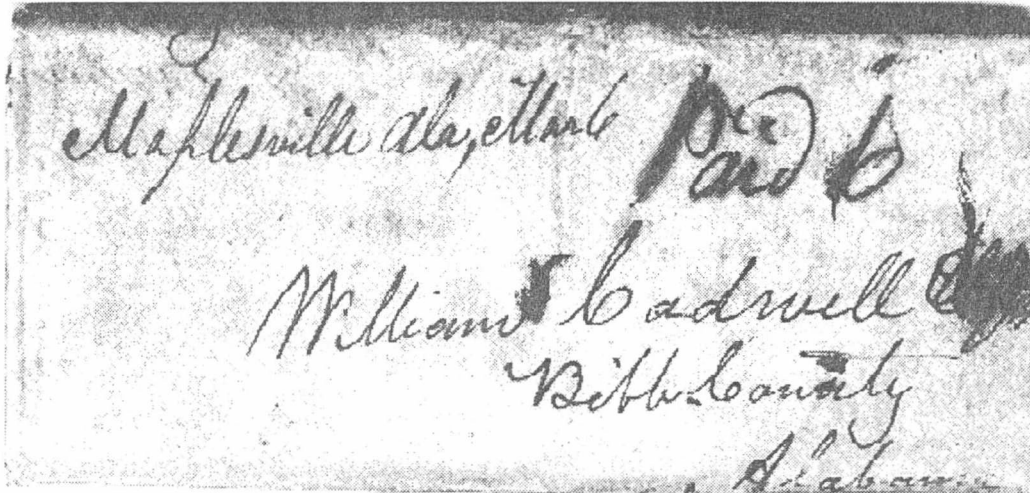 Maplesville Ala, Mar 6 Paid 6
William Cadwell Esq
Bibb County
Alabama